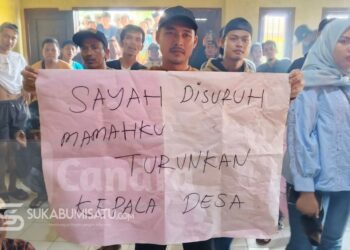 SAYAH DISURUH
MAMAHKU
TURUNKAN
KEPALA DESA
SUKABUMISATU.COM